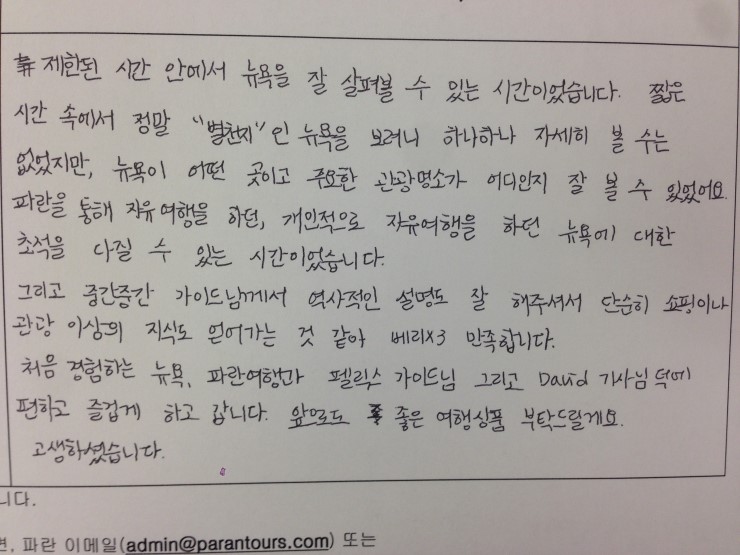 제한된 시간 안에서 뉴욕을 잘 살펴볼 수 있는 시간이었습니다. 짧은
시간 속에서 정말 "별천지"인 뉴욕을 보려니 하나하나 자세히 볼 수는
없었지만, 뉴욕이 어떤 곳이고 주요한 관광명소가 어디인지 잘 볼 수 있었어요.
파란을 통해 자유여행을 하던, 개인적으로 자유여행을 하던 뉴욕에 대한
초석을 다질 수 있는 시간이었습니다.
그리고 중간중간 가이드님께서 역사적인 설명도 잘 해주셔서 단순히 쇼핑이나
관광 이상의 지식도 얻어가는 것 같아 베리x3 만족합니다.
처음 경험하는 뉴욕, 파란여행과 펠릭스 가이드님 그리고 David 기사님 덕에
편하고 즐겁게 하고 갑니다. 앞으로도 좋은 여행상품 부탁드릴게요.
고생하셨습니다.
니다.
면, 파란 이메일(admin@parantours.com) 또는